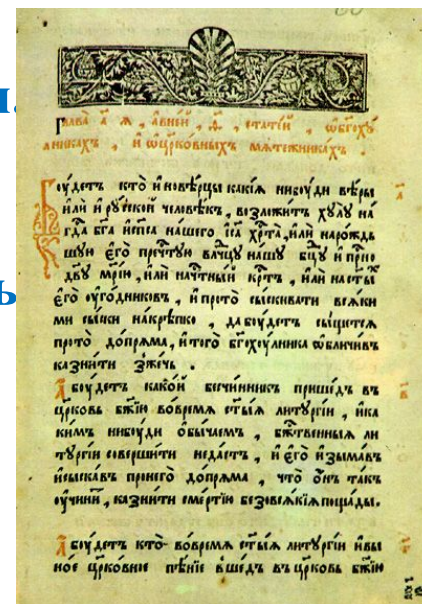 Глава а҃ я , а в ней , ѳ҃ , статей , ѡ бг҃оху
лниках , и ѡ цр҃ковных мѧтежниках .
Боудет кто иноверцы какия нибоуди веры
или и роуской человек , возложит хулу на
гд҃а бг҃а и сп҃са нашего іс҃а хр҃та , или на рождь
шую его преч҃тую влчцу нашу бц҃у и прн҃о
дв҃у мр҃ию , или на ч҃тный кр҃т , или на ст҃ы
его оугодников , и про то сыскивати всяки
ми сыски накрепко , да боудет сыщется
про то допряма , и того бг҃охулника ѡбличив
казнити зжечь .
А боудет какой бесчинник пришед въ
цр҃ковь бж҃ию во время ст҃ыя литоургии , и ка
ким нибоуди обычаем , бж҃твенныя ли
тоургии совершити не даст , и его изымав
и сыскав про него допряма , что онъ такъ
оучинит , казнити смертию безо всякия пощады .
А боудет кто во время ст҃ыя литоургии и въ и
ное цр҃ковное пение вшед въ цр҃ковь бж҃ию